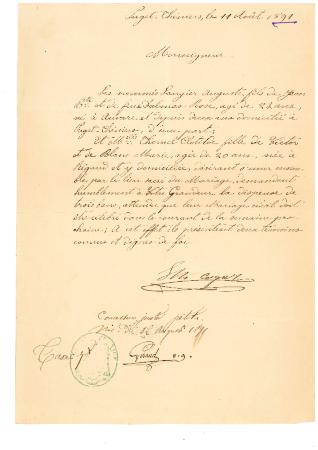 Puget-Théniers, le 11 Août 1891
Monseigneur
Les nommés Laugier Auguste, fils de Jean
Bte et de feue Dalmas Rose, agé de 28 ans,
né à Auvare et depuis deux ans domicilié à
Puget-Théniers, d'une part;
Et Mlle Thomel Clotilde fille de Victor
et de Blanc Marie, agée de 20 ans, née à
Rigaud et y domiciliée, désirant s'unir ensem-
ble par le lien sacré du Mariage, demandent
humblement à Votre Grandeur la dispense de
trois bans, attendu que leur mariage civil doit
être célébré dans le courant de la semaine pro-
chaine; A cet effet ils présentent deux témoins
connus et dignes de foi
Concessum juxta petita
Taxe